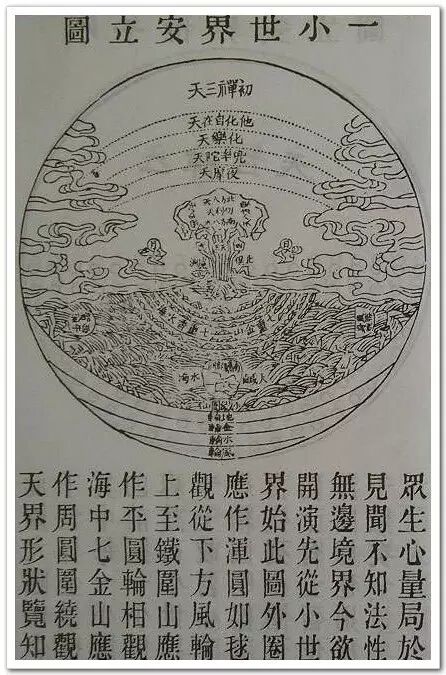 一小世界安立圖
初禪三天
他化自在天
化樂天
兜率陀天
夜摩天
日
月
地輪
金輪
水輪
風輪
眾生心量局於
見聞不知法性
無邊境界今欲
開演先從小世
界始此圖外圈
應作渾圓如球
觀從下方風輪
上至鐵圍山應
作平圓輪相觀
海中七金山應
作周圓圍繞觀
天界形狀覽知